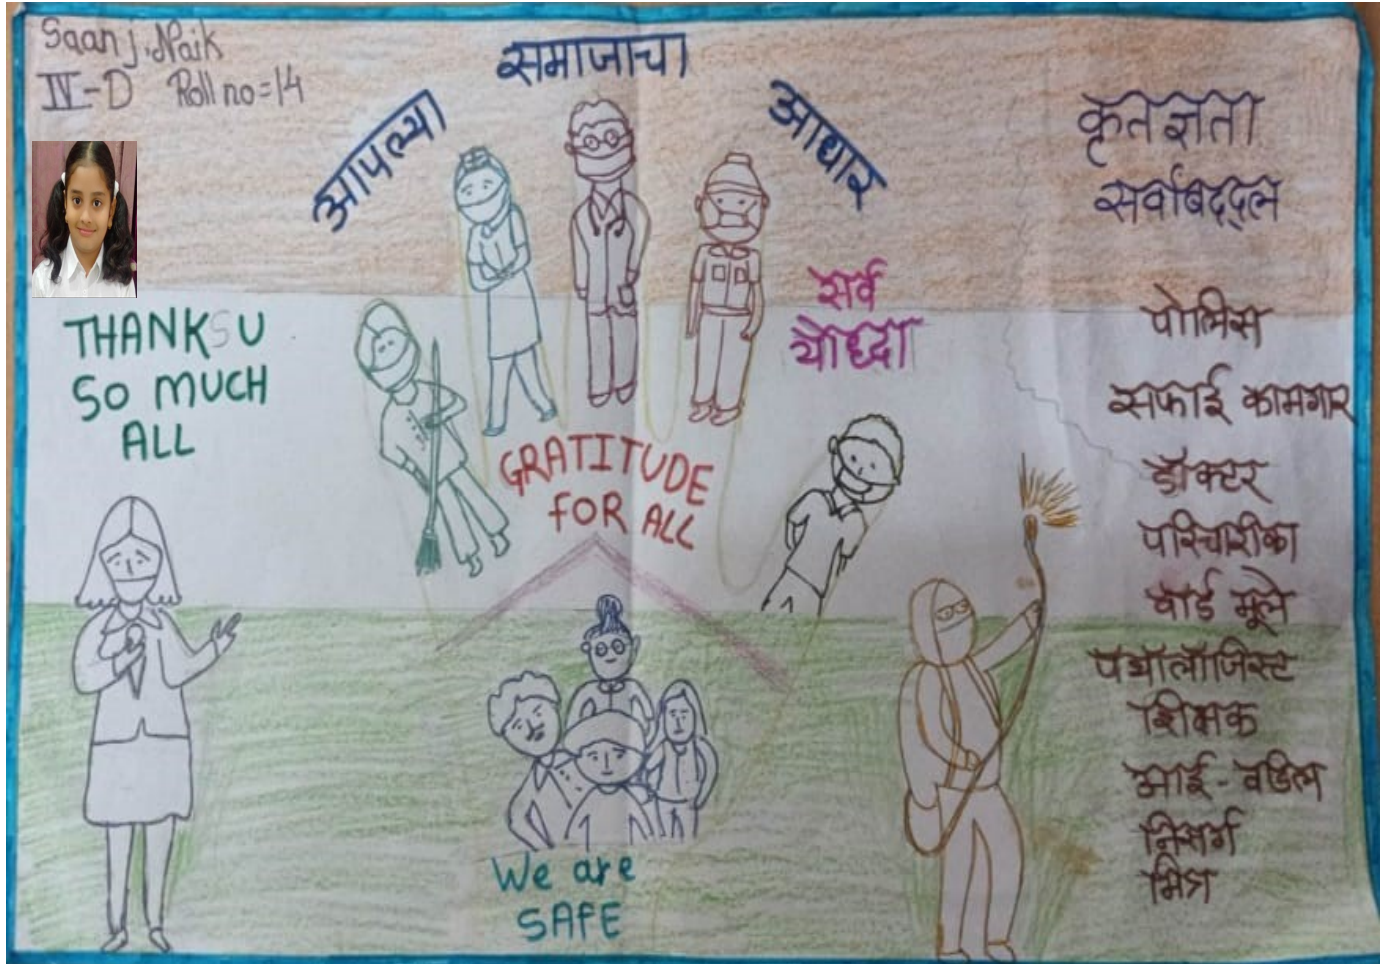 Saanj.Naik
IV-D Roll no=14
आपल्या
समाजाचा
आधार
कृतज्ञता
सर्वाबद्दल
सर्व
योध्दा
THANKS U
SO MUCH
ALL
GRATITUDE
FOR ALL
पोलिस
सफाई कामगार
डॉक्टर
परिचारीका
वॉर्ड मूले
पॅथॉलॉजिस्ट
शिक्षक
आई-वडिल
निसर्ग
मित्र
We are
SAFE